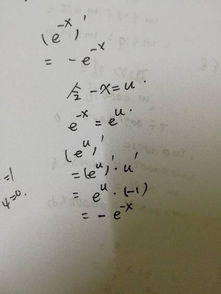 (e^-x)'
= -e^-x
令 -x=u.
e^-x = e^u.
(e^u)'
=(e^u)'·u'
= e^u·(-1)
= -e^-x
=1
y=0.